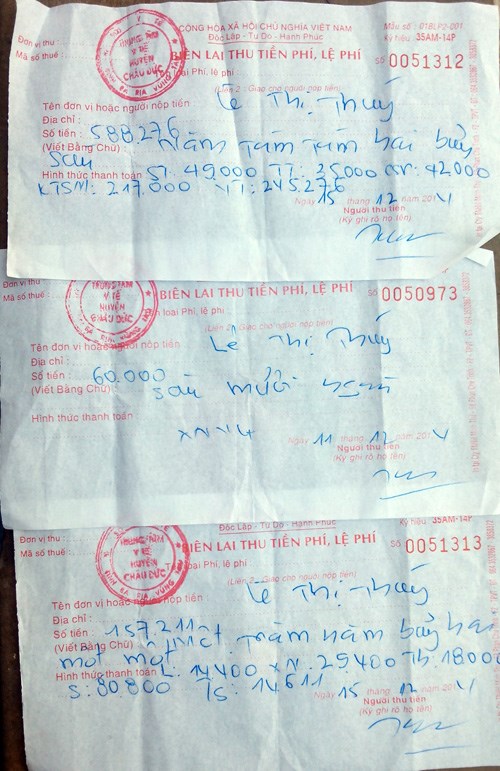 CỘNG HÒA XÃ HỘI CHỦ NGHĨA VIỆT NAM
Độc Lập - Tự Do - Hạnh Phúc
Mẫu số : 01BLP2-001
Ký hiệu: 35AM-14P
Đơn vị thu :
Mã số thuế :
TRUNG TÂM
Y TẾ
HUYỆN
CHÂU ĐỨC
BÀ RỊA VŨNG TÀU
BIÊN LAI THU TIỀN PHÍ, LỆ PHÍ
Số 0051312
loại Phí, lệ Phí
(Liên 2 : Giao cho người nộp tiền)
Tên đơn vị hoặc người nộp tiền : Lê Thị Thuý
Địa chỉ :
Số tiền : 588.276
(Viết Bằng Chữ) : Năm tám tám hai bảy
sáu
Hình thức thanh toán ST: 49.000 TT: 35.000 42.000
KTSM: 217.000 VT: 245.276
Ngày 15 tháng 12 năm 2014
Người thu tiền
(Ký ghi rõ họ tên)
Đơn vị thu
Mã số thuế:
TRUNG TÂM
Y TẾ
HUYỆN
CHÂU ĐỨC
BIÊN LAI THU TIỀN PHÍ, LỆ PHÍ
Số 0050973
loại Phí, lệ Phí
(Liên 2 : Giao cho người nộp tiền)
Tên đơn vị hoặc người nộp tiền : Lê Thị Thuý
Địa chỉ :
Số tiền : 60.000
(Viết Bằng Chữ) : sáu mươi ngàn
Hình thức thanh toán
Ngày 11 tháng 12 năm 2014
Người thu tiền
(Ký ghi rõ họ tên)
Độc Lập - Tự Do - Hạnh Phúc
Ký hiệu: 35AM-14P
Đơn vị thu :
Mã số thuế:
TRUNG TÂM
Y TẾ
HUYỆN
CHÂU ĐỨC
BÀ RỊA VŨNG TÀU
BIÊN LAI THU TIỀN PHÍ, LỆ PHÍ
Số 0051313
loại Phí, lệ Phí
(Liên 2 : Giao cho người nộp tiền)
Tên đơn vị hoặc người nộp tiền : Lê Thị Thuý
Địa chỉ :
Số tiền : 157.211
(Viết Bằng Chữ) : Một trăm năm bảy hai
một một
Hình thức thanh toán L: 14400 XN: 29.400 Th: 18000
S: 80.800 TS: 14611
15 12 2014
Người thu tiền
(Ký ghi rõ họ tên)